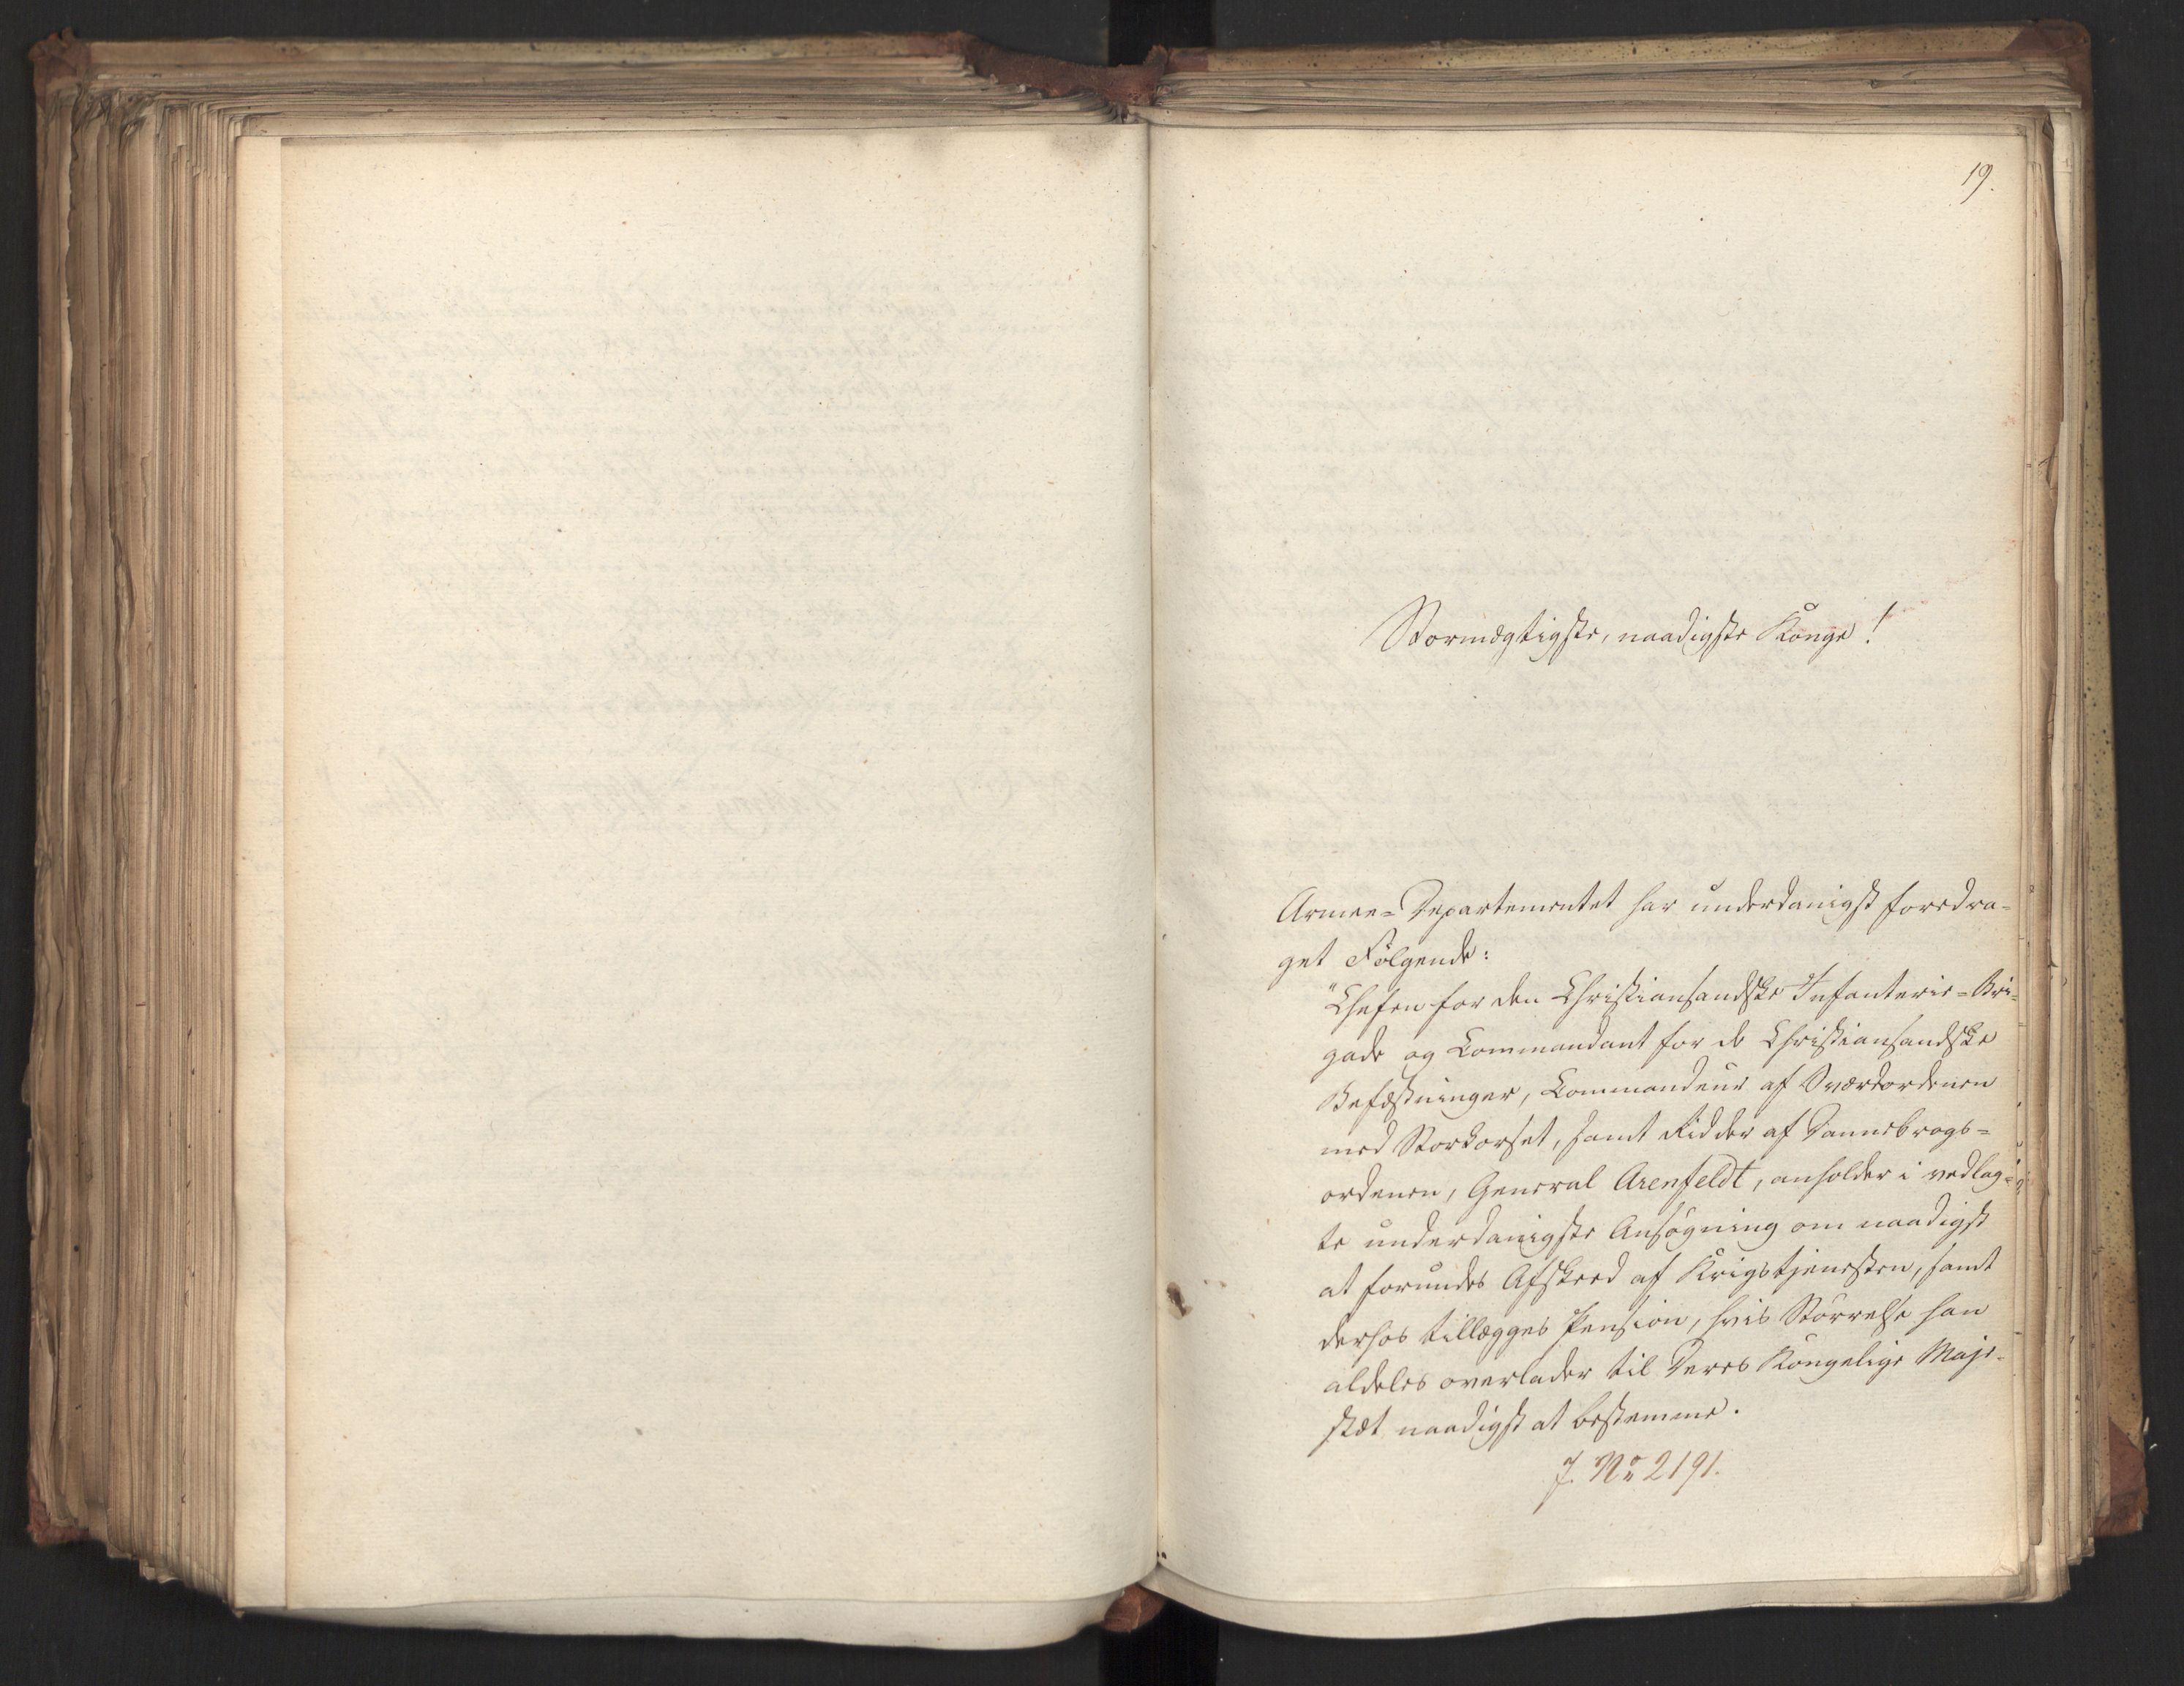 19.
Stormægtigste, naadigste Konge!
Armee-Departementet har underdanigst foredra-
get Følgende:
"Chefen for den Christiansandske Infanterie-Bri-
gade og Commandant for de Christiansandske
Befæstninger, Commandeur af Sværdordenen
med Storkorset, samt Ridder af Dannebrogs-
ordenen, General Arenfeldt, anholder i vedlag-
te underdanigste Ansøgning om naadigst
at forundes Afskeed af Krigstjenesten, samt
derhos tillægges Pension, hvis Størrelse han
aldeles overlader til Deres Kongelige Maje-
stæt naadigst at bestemme.
J. No 2191.